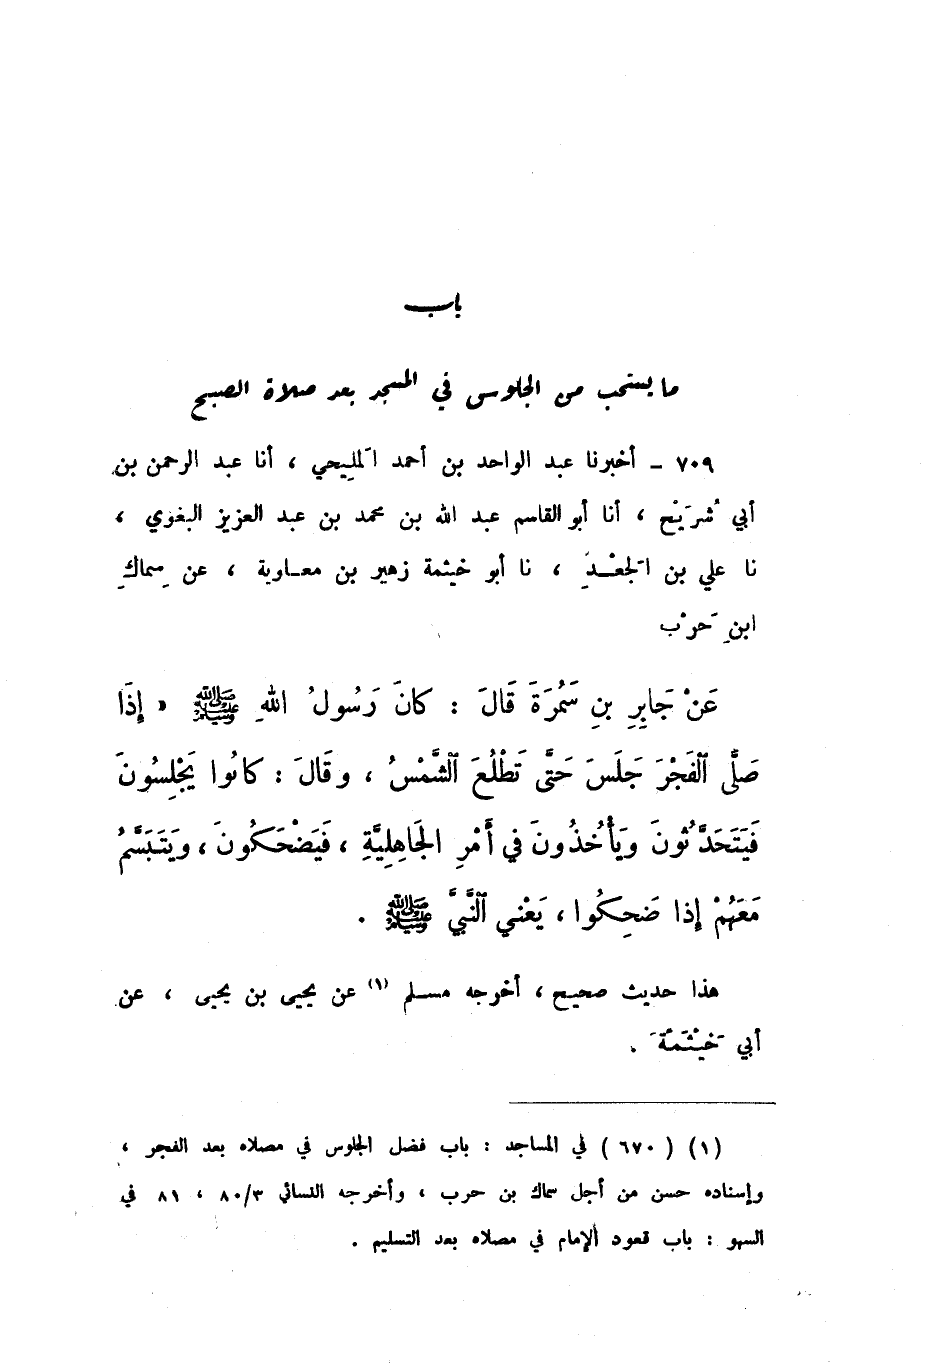 باب
ما يستحب من الجلوس في المسجد بعد صلاة الصبح
٧٠٩ ـ أخبرنا عبد الواحد بن أحمد المَلِيحي ، أنا عبد الرحمن بن
أبي شُرَيْح ، أنا أبو القاسم عبد الله بن محمد بن عبد العزيز البغوي ،
نا علي بن الجَعْـدِ ، نا أبو خيثمة زهير بن معـاوية ، عن سِماكِ
ابنِ حَرْب
عَنْ جَابِرِ بنِ سَمُرَةَ قَالَ : كَانَ رَسُولُ اللهِ ﷺ « إِذَا
صَلَّى ٱلْفَجْرَ جَلَسَ حَتَّى تَطْلُعَ ٱلشَّمْسُ ، وقَالَ : كانُوا يَجْلِسُونَ
فَيَتَحَدَّثُونَ وَيَأْخُذُونَ في أَمْرِ الجَاهِلِيَّةِ ، فَيَضْحَكُونَ ، ويَتَبَسَّمُ
مَعَهُمْ إِذا ضَحِكُوا ، يَعْني ٱلنَّبيَّ ﷺ .
هذا حديث صحيح ، أخرجه مسلم (١) عن يحيى بن يحيى ، عن
أبي خَيْثَمَةَ .
(١) ( ٦٧٠ ) في المساجد : باب فضل الجلوس في مصلاه بعد الفجر ،
وإسناده حسن من أجل سماك بن حرب ، وأخرجه النسائي ٨٠/٣ ، ٨١ في
السهو : باب قعود الإمام في مصلاه بعد التسليم .